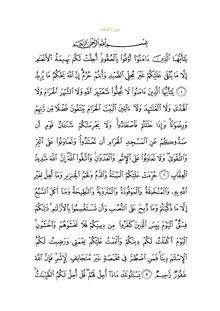 سورة المائدة
بِسْمِ اللَّهِ الرَّحْمَٰنِ الرَّحِيمِ
يَا أَيُّهَا الَّذِينَ ءَامَنُوا أَوْفُوا بِالْعُقُودِ أُحِلَّتْ لَكُم بَهِيمَةُ الْأَنْعَامِ
إِلَّا مَا يُتْلَىٰ عَلَيْكُمْ غَيْرَ مُحِلِّي الصَّيْدِ وَأَنتُمْ حُرُمٌ إِنَّ اللَّهَ يَحْكُمُ مَا يُرِيدُ
١ يَا أَيُّهَا الَّذِينَ ءَامَنُوا لَا تُحِلُّوا شَعَائِرَ اللَّهِ وَلَا الشَّهْرَ الْحَرَامَ وَلَا
الْهَدْيَ وَلَا الْقَلَائِدَ وَلَا ءَامِّينَ الْبَيْتَ الْحَرَامَ يَبْتَغُونَ فَضْلًا مِّن رَّبِّهِمْ
وَرِضْوَانًا وَإِذَا حَلَلْتُمْ فَاصْطَادُوا وَلَا يَجْرِمَنَّكُمْ شَنَآنُ قَوْمٍ أَن
صَدُّوكُمْ عَنِ الْمَسْجِدِ الْحَرَامِ أَن تَعْتَدُوا وَتَعَاوَنُوا عَلَى الْبِرِّ
وَالتَّقْوَىٰ وَلَا تَعَاوَنُوا عَلَى الْإِثْمِ وَالْعُدْوَانِ وَاتَّقُوا اللَّهَ إِنَّ اللَّهَ شَدِيدُ
الْعِقَابِ ٢ حُرِّمَتْ عَلَيْكُمُ الْمَيْتَةُ وَالدَّمُ وَلَحْمُ الْخِنزِيرِ وَمَا أُهِلَّ لِغَيْرِ
اللَّهِ بِهِ وَالْمُنْخَنِقَةُ وَالْمَوْقُوذَةُ وَالْمُتَرَدِّيَةُ وَالنَّطِيحَةُ وَمَا أَكَلَ السَّبُعُ
إِلَّا مَا ذَكَّيْتُمْ وَمَا ذُبِحَ عَلَى النُّصُبِ وَأَن تَسْتَقْسِمُوا بِالْأَزْلَامِ ذَٰلِكُمْ
فِسْقٌ الْيَوْمَ يَئِسَ الَّذِينَ كَفَرُوا مِن دِينِكُمْ فَلَا تَخْشَوْهُمْ وَاخْشَوْنِ
الْيَوْمَ أَكْمَلْتُ لَكُمْ دِينَكُمْ وَأَتْمَمْتُ عَلَيْكُمْ نِعْمَتِي وَرَضِيتُ لَكُمُ
الْإِسْلَامَ دِينًا فَمَنِ اضْطُرَّ فِي مَخْمَصَةٍ غَيْرَ مُتَجَانِفٍ لِّإِثْمٍ فَإِنَّ اللَّهَ
غَفُورٌ رَّحِيمٌ ٣ يَسْأَلُونَكَ مَاذَا أُحِلَّ لَهُمْ قُلْ أُحِلَّ لَكُمُ الطَّيِّبَاتُ